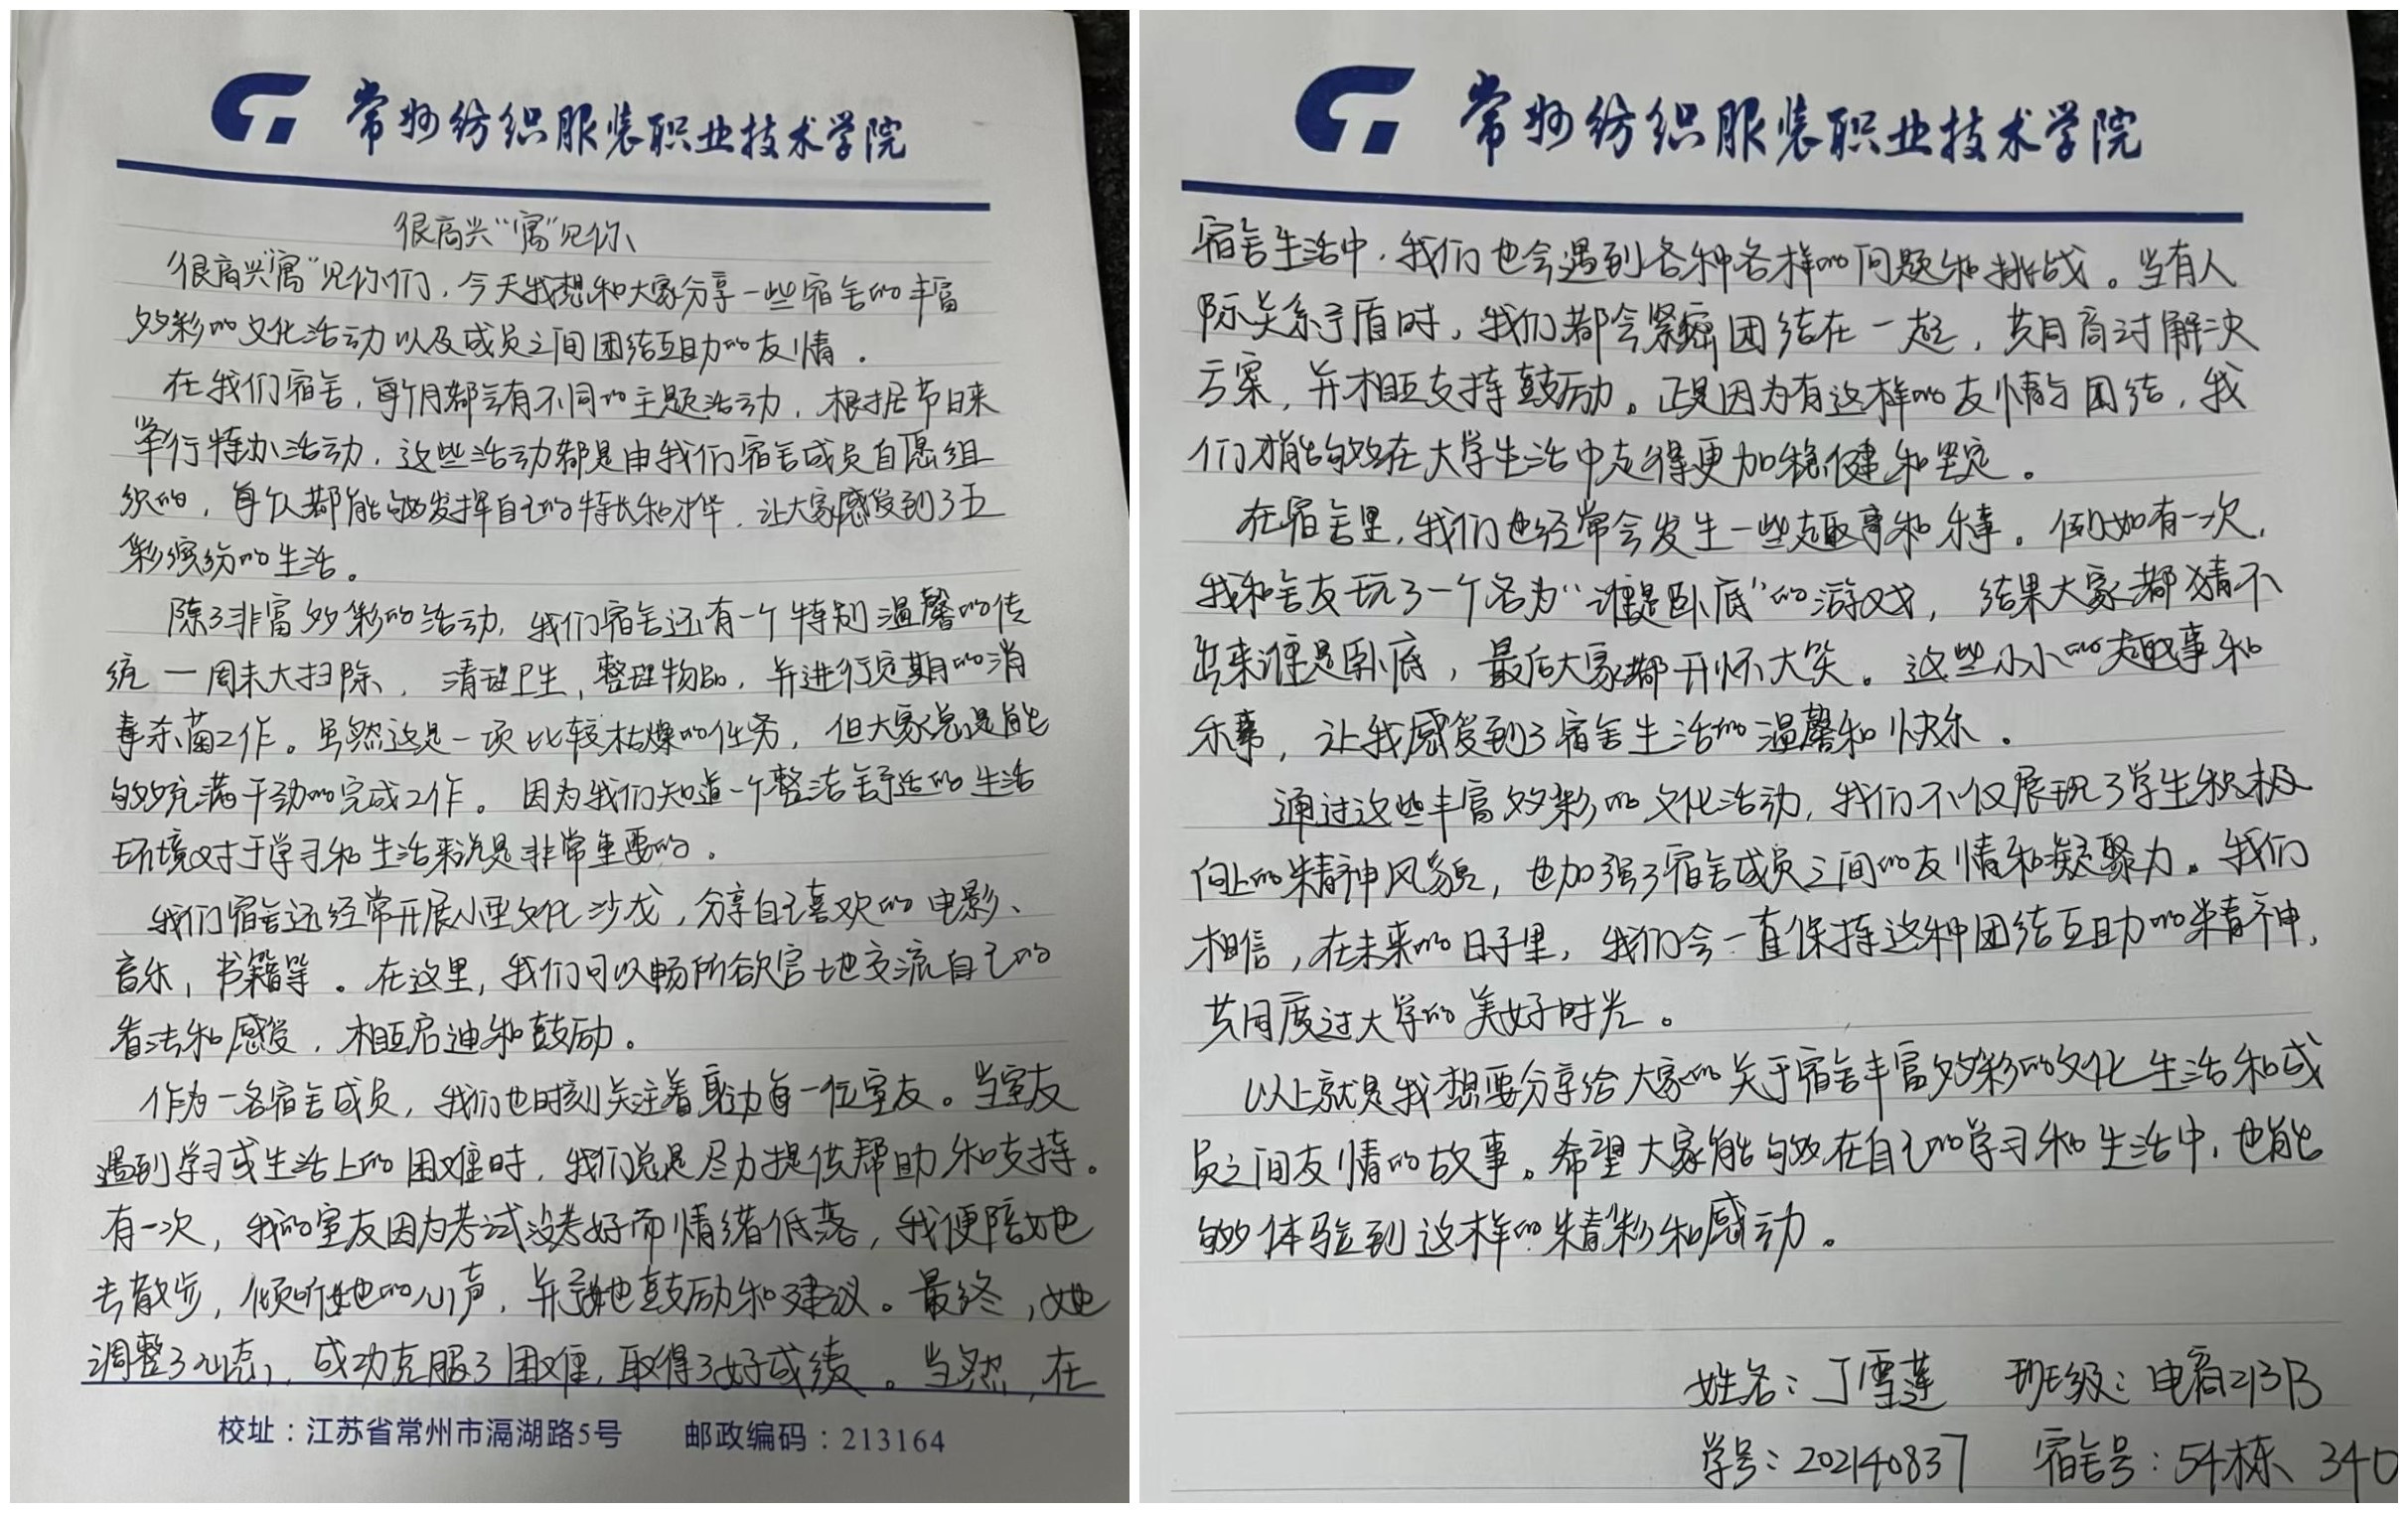 常州纺织服装职业技术学院
很高兴“寓”见你
很高兴“寓”见你们，今天我想和大家分享一些宿舍的丰富
多彩的文化活动以及成员之间团结互助的友情．
在我们宿舍，每个月都会有不同的主题活动，根据节日来
举行特办活动，这些活动都是由我们宿舍成员自愿组
织的，每个人都能够发挥自己的特长和才华，让大家感受到了五
彩缤纷的生活。
除了非富多彩的活动，我们宿舍还有一个特别温馨的传
统一周末大扫除，清理卫生，整理物品，并进行定期的消
毒杀菌工作。虽然这是一项比较枯燥的任务，但大家总是能
够充满干劲的完成工作。因为我们知道一个整洁舒适的生活
环境对于学习和生活来说是非常重要的．
我们宿舍还经常开展小型文化沙龙，分享自己喜欢的电影、
音乐，书籍等。在这里，我们可以畅所欲言地交流自己的
看法和感受，相互启迪和鼓励。
作为一名宿舍成员，我们也时刻关注着身边每一位室友。当室友
遇到学习或生活上的困难时，我们总是尽力提供帮助和支持。
有一次，我的室友因为考试没考好而情绪低落，我便陪她
去散步，倾听她的心声，并给她鼓励和建议。最终，她
调整了心态，成功克服了困难，取得了好成绩。当然，在
校址：江苏省常州市滆湖路5号 邮政编码：213164
常州纺织服装职业技术学院
宿舍生活中，我们也会遇到各种各样的问题和挑战。当有人
际关系矛盾时，我们都会紧密团结在一起，共同商讨解决
方案，并相互支持鼓励。正是因为有这样的友情与团结，我
们才能够在大学生活中走得更加稳健和坚定。
在宿舍里，我们也经常会发生一些趣事和乐事。例如有一次，
我和舍友玩了一个名为“谁是卧底”的游戏，结果大家都猜不
出来谁是卧底，最后大家都开怀大笑。这些小小的趣事和
乐事，让我感受到了宿舍生活的温馨和快乐．
通过这些丰富多彩的文化活动，我们不仅展现了学生积极
向上的精神风貌，也加强了宿舍成员之间的友情和凝聚力。我们
相信，在未来的日子里，我们会一直保持这种团结互助的精神，
共同度过大学的美好时光。
以上就是我想要分享给大家的关于宿舍丰富多彩的文化生活和成
员之间友情的故事。希望大家能够在自己的学习和生活中，也能
够体验到这样的精彩和感动。
姓名：丁雪莲 班级：电商213B
学号：202140837 宿舍号：54栋 340